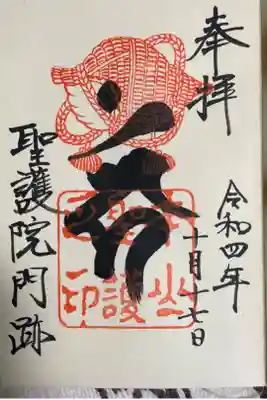 奉拝
令和四年
十月十七日
聖護院門跡